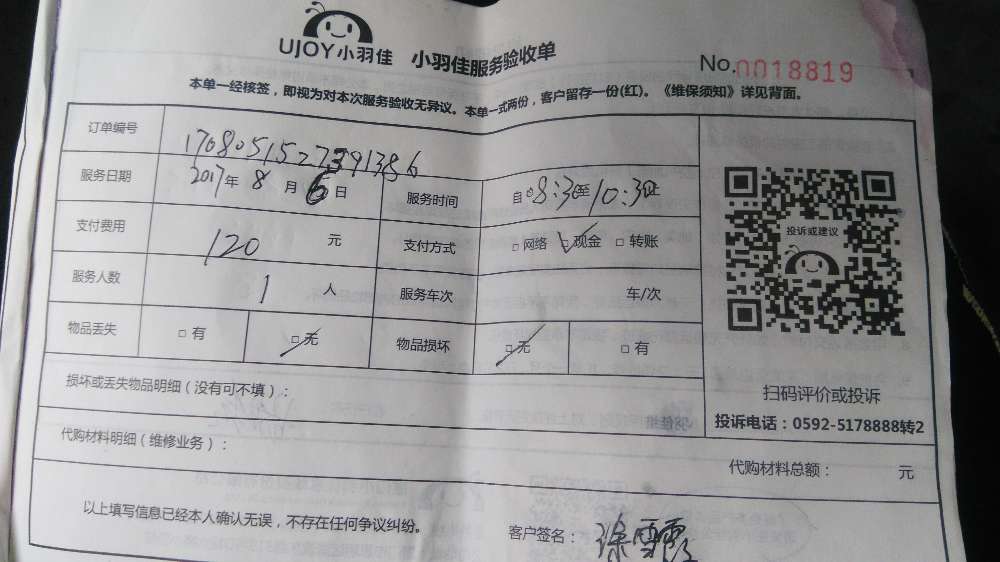 UJOY小羽佳 小羽佳服务验收单
No.0018819
本单一经核签，即视为对本次服务验收无异议。本单一式两份，客户留存一份(红)。《维保须知》详见背面。
订单编号 1708051527391386
服务日期 2017年 8 月 6 日 服务时间 自 8:30至10:30止
支付费用 120 元 支付方式 □网络 ☑现金 □转账
服务人数 1 人 服务车次 车/次
物品丢失 □有 ☑无 物品损坏 ☑无 □有
投诉或建议
扫码评价或投诉
投诉电话：0592-5178888转2
损坏或丢失物品明细（没有可不填）：
代购材料明细（维修业务）：
代购材料总额： 元
以上填写信息已经本人确认无误，不存在任何争议纠纷。
客户签名：徐雪霞